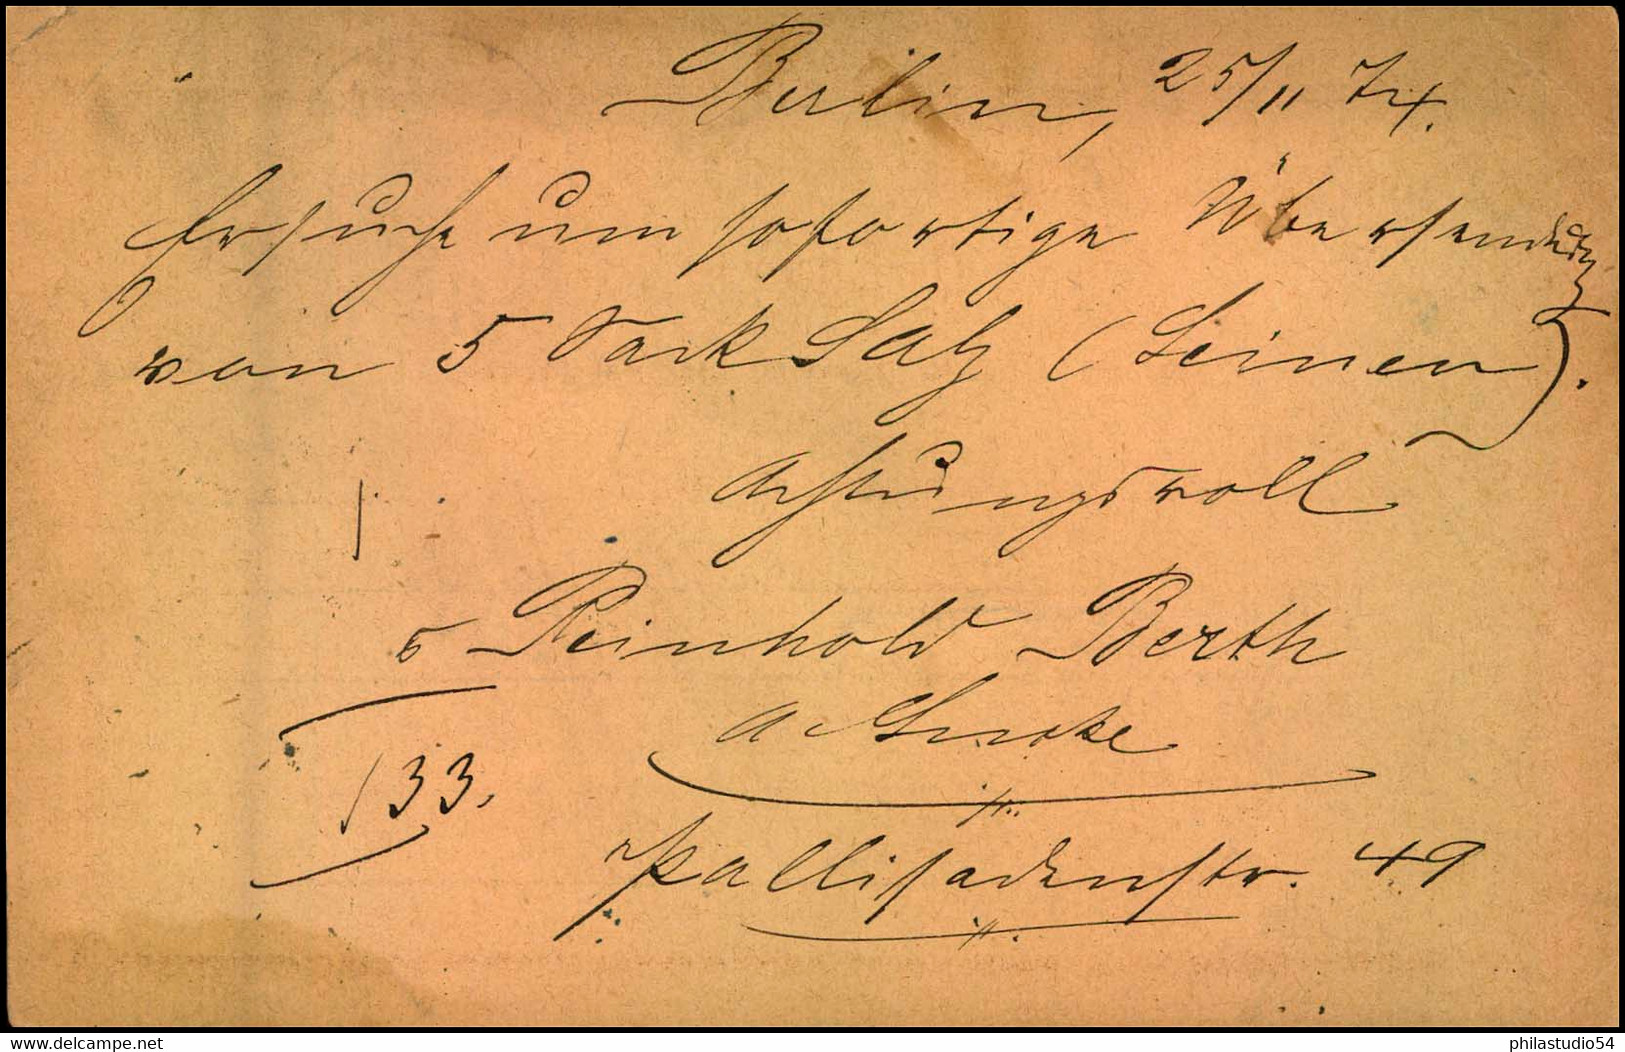 Berlin, 25/11 74.
Ersuche um sofortige Übersendung
von 5 Sack Salz (Leinen).
Achtungsvoll
5 Reinhold Berth
133.
Pallisadenstr. 49
www.delcampe.net
philastudio54